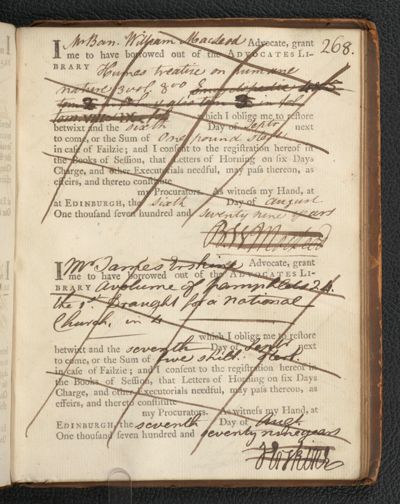 268.
I Mr Ban. William Macleod Advocate, grant
me to have borrowed out of the ADVOCATES LI-
BRARY Humes treatise on humane
nature 3 vol. 8vo
which I oblige me to restore
betwixt and the sixth Day of Septr next
to come, or the Sum of One pound Sterl
in case of Failzie; and I consent to the registration hereof in
the Books of Session, that Letters of Horning on six Days
Charge, and other Executorials needful, may pass thereon, as
effeirs, and thereto constitute
my Procurators. As witness my Hand, at
at EDINBURGH, the sixth Day of august
One thousand seven hundred and seventy nine years
I Mr James Erskine Advocate, grant
me to have borrowed out of the ADVOCATES LI-
BRARY A volume of pamphlets 24.
the 1st. Draught for a national
Church, in 4
which I oblige me to restore
betwixt and the seventh Day of Septr next
to come, or the Sum of five shill. Sterl.
in case of Failzie; and I consent to the registration hereof in
the Books of Session, that Letters of Horning on six Days
Charge, and other Executorials needful, may pass thereon, as
effeirs, and thereto constitute
my Procurators. As witness my Hand, at
EDINBURGH, the seventh Day of Augt.
One thousand seven hundred and seventy nine years
J Erskine